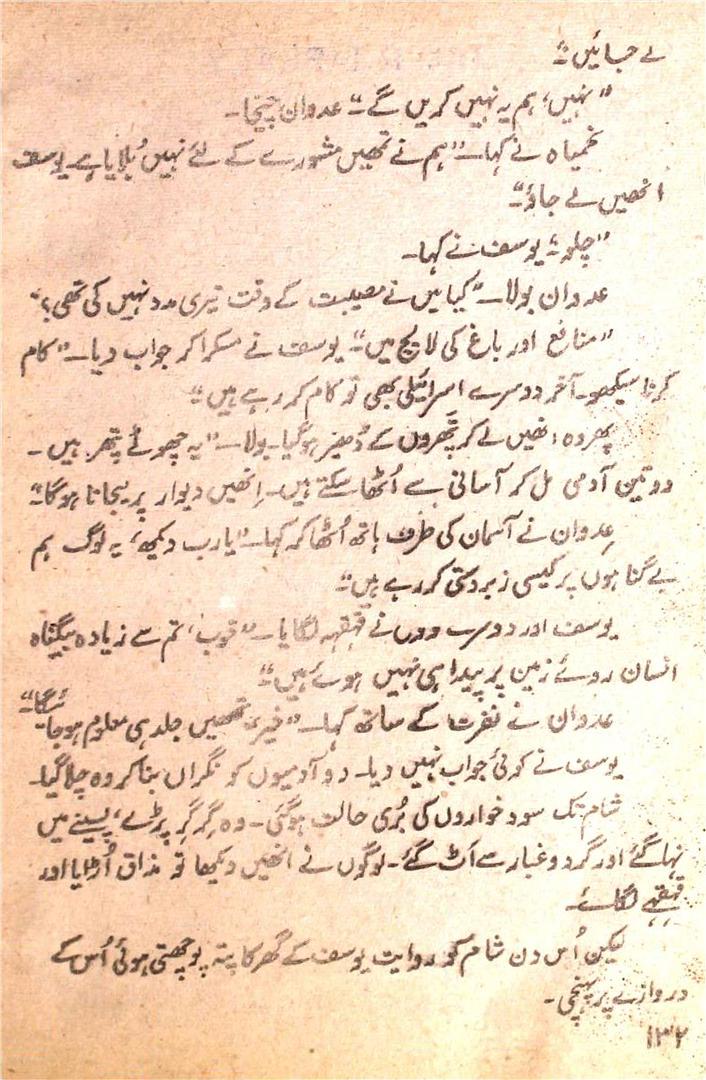 لے جائیں؟"
"نہیں، ہم یہ نہیں کریں گے۔" عدوان چیخا۔
نحمیاہ نے کہا۔ "ہم نے تمہیں مشورے کے لئے نہیں بُلایا ہے۔ یوسف
انھیں لے جاؤ۔"
"چلو؛" یوسف نے کہا۔
عدوان بولا۔ "کیا میں نے مصیبت کے وقت تیری مدد نہیں کی تھی؟"
"منافع اور باغ کی لالچ میں۔" یوسف نے مسکرا کر جواب دیا۔ "کام
کرنا سیکھو۔ آخر دوسرے اسرائیلی بھی تو کام کر رہے ہیں۔"
پھر وہ انھیں لے کر پتھروں کے ڈھیر پر گیا۔ بولا۔ "یہ چھوٹے پتھر ہیں۔
دو تین آدمی مل کر آسانی سے اُٹھا سکتے ہیں۔ اِنھیں دیوار پر لیجانا ہوگا۔"
عدوان نے آسمان کی طرف ہاتھ اُٹھا کر کہا۔ "یارب دیکھ، یہ لوگ ہم
بے گناہوں پر کیسی زبردستی کر رہے ہیں۔"
یوسف اور دوسرے مردوں نے قہقہہ لگایا۔ "خوب، تم سے زیادہ بیگناہ
انسان روئے زمین پر پیدا ہی نہیں ہوئے ہیں۔"
عدوان نے نفرت کے ساتھ کہا۔ "خیر، تمھیں جلد ہی معلوم ہو جائیگا۔"
یوسف نے کوئی جواب نہیں دیا۔ دو آدمیوں کو نگراں بنا کر وہ چلا گیا۔
شام تک سود خواروں کی بُری حالت ہو گئی۔ وہ گِر گِر پڑے، پسینے میں
نہا گئے اور گرد و غبار سے اَٹ گئے۔ لوگوں نے انھیں دیکھا تو مذاق اُڑایا اور
قہقہے لگائے۔
لیکن اُس دن شام کو روایت یوسف کے گھر کا پتہ پوچھتی ہوئی اُس کے
دروازے پر پہنچی۔
۱۳۲